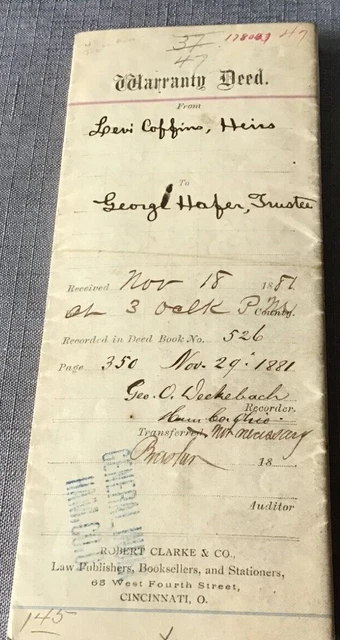 37
47
178003 47
Warranty Deed.
From
Levi Coffins, Heirs
To
George Hafer, Trustee
Received Nov 18 1881
at 3 oclk P.M. County.
Recorded in Deed Book No. 526
Page 350 Nov. 29. 1881
Geo. O. Deckebach
Recorder.
Ham Co. Ohio.
Transferred Not necessary
18
Auditor
GENERAL
HAMILTON
ROBERT CLARKE & CO.,
Law Publishers, Booksellers, and Stationers,
65 West Fourth Street,
CINCINNATI, O.
145